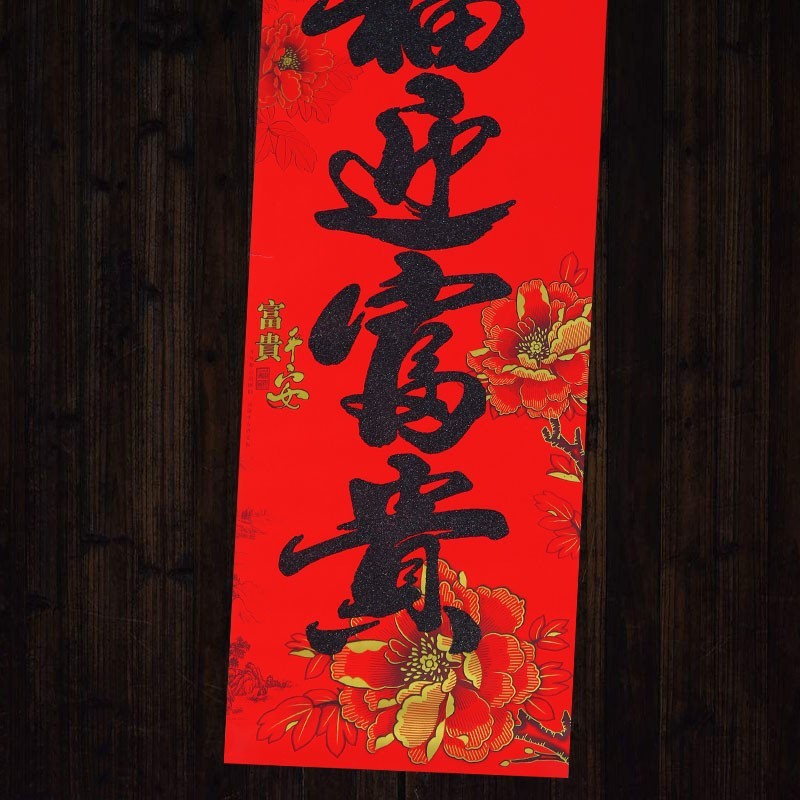 福迎富貴
富貴
平安